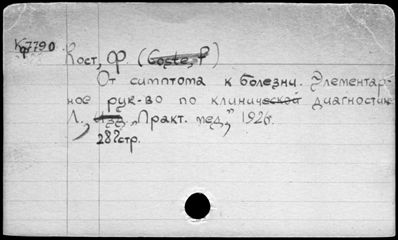 Кф7790
Кост, Ф (Coste, F)
От симптома к болезни. Элементар-
ное рук-во по клинической диагностике
Л., Изд. "Практ. мед.", 1926.
282стр.